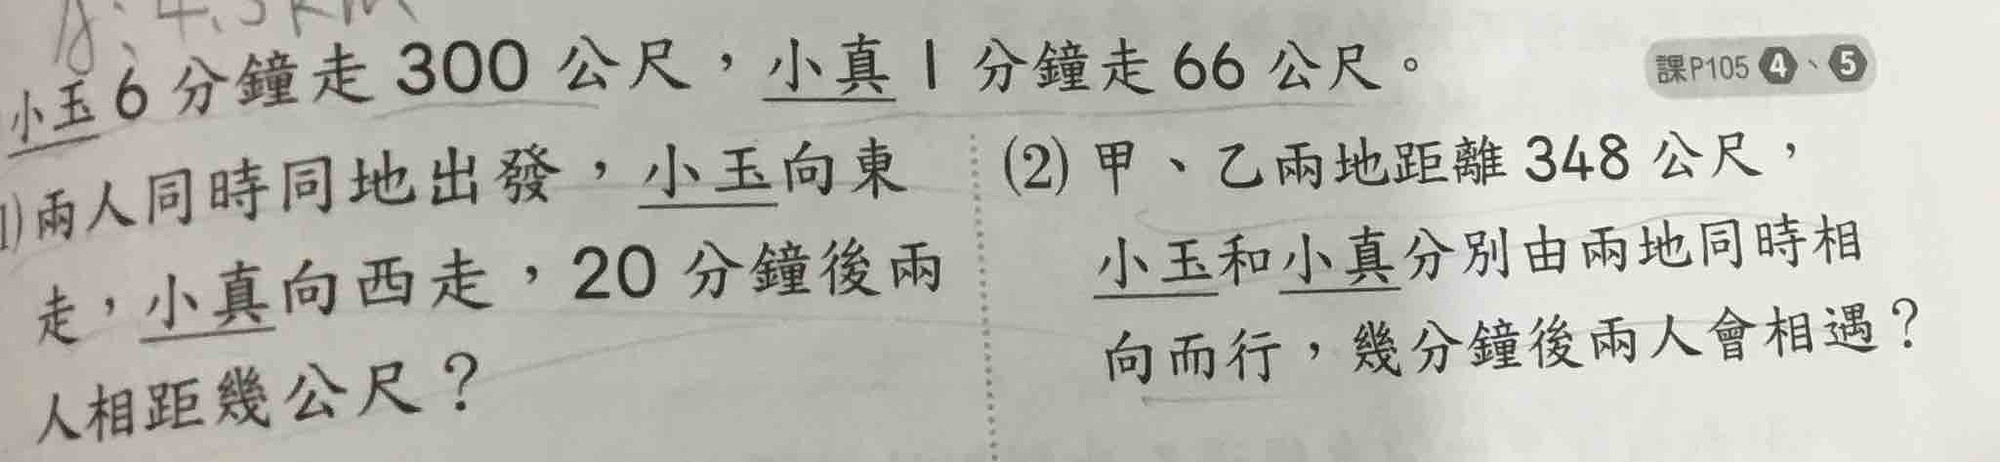 y: 4.5km
小玉6分鐘走300公尺，小真1分鐘走66公尺。 課P105 4、5
1)兩人同時同地出發，小玉向東
走，小真向西走，20分鐘後兩
人相距幾公尺？
(2)甲、乙兩地距離348公尺，
小玉和小真分別由兩地同時相
向而行，幾分鐘後兩人會相遇？